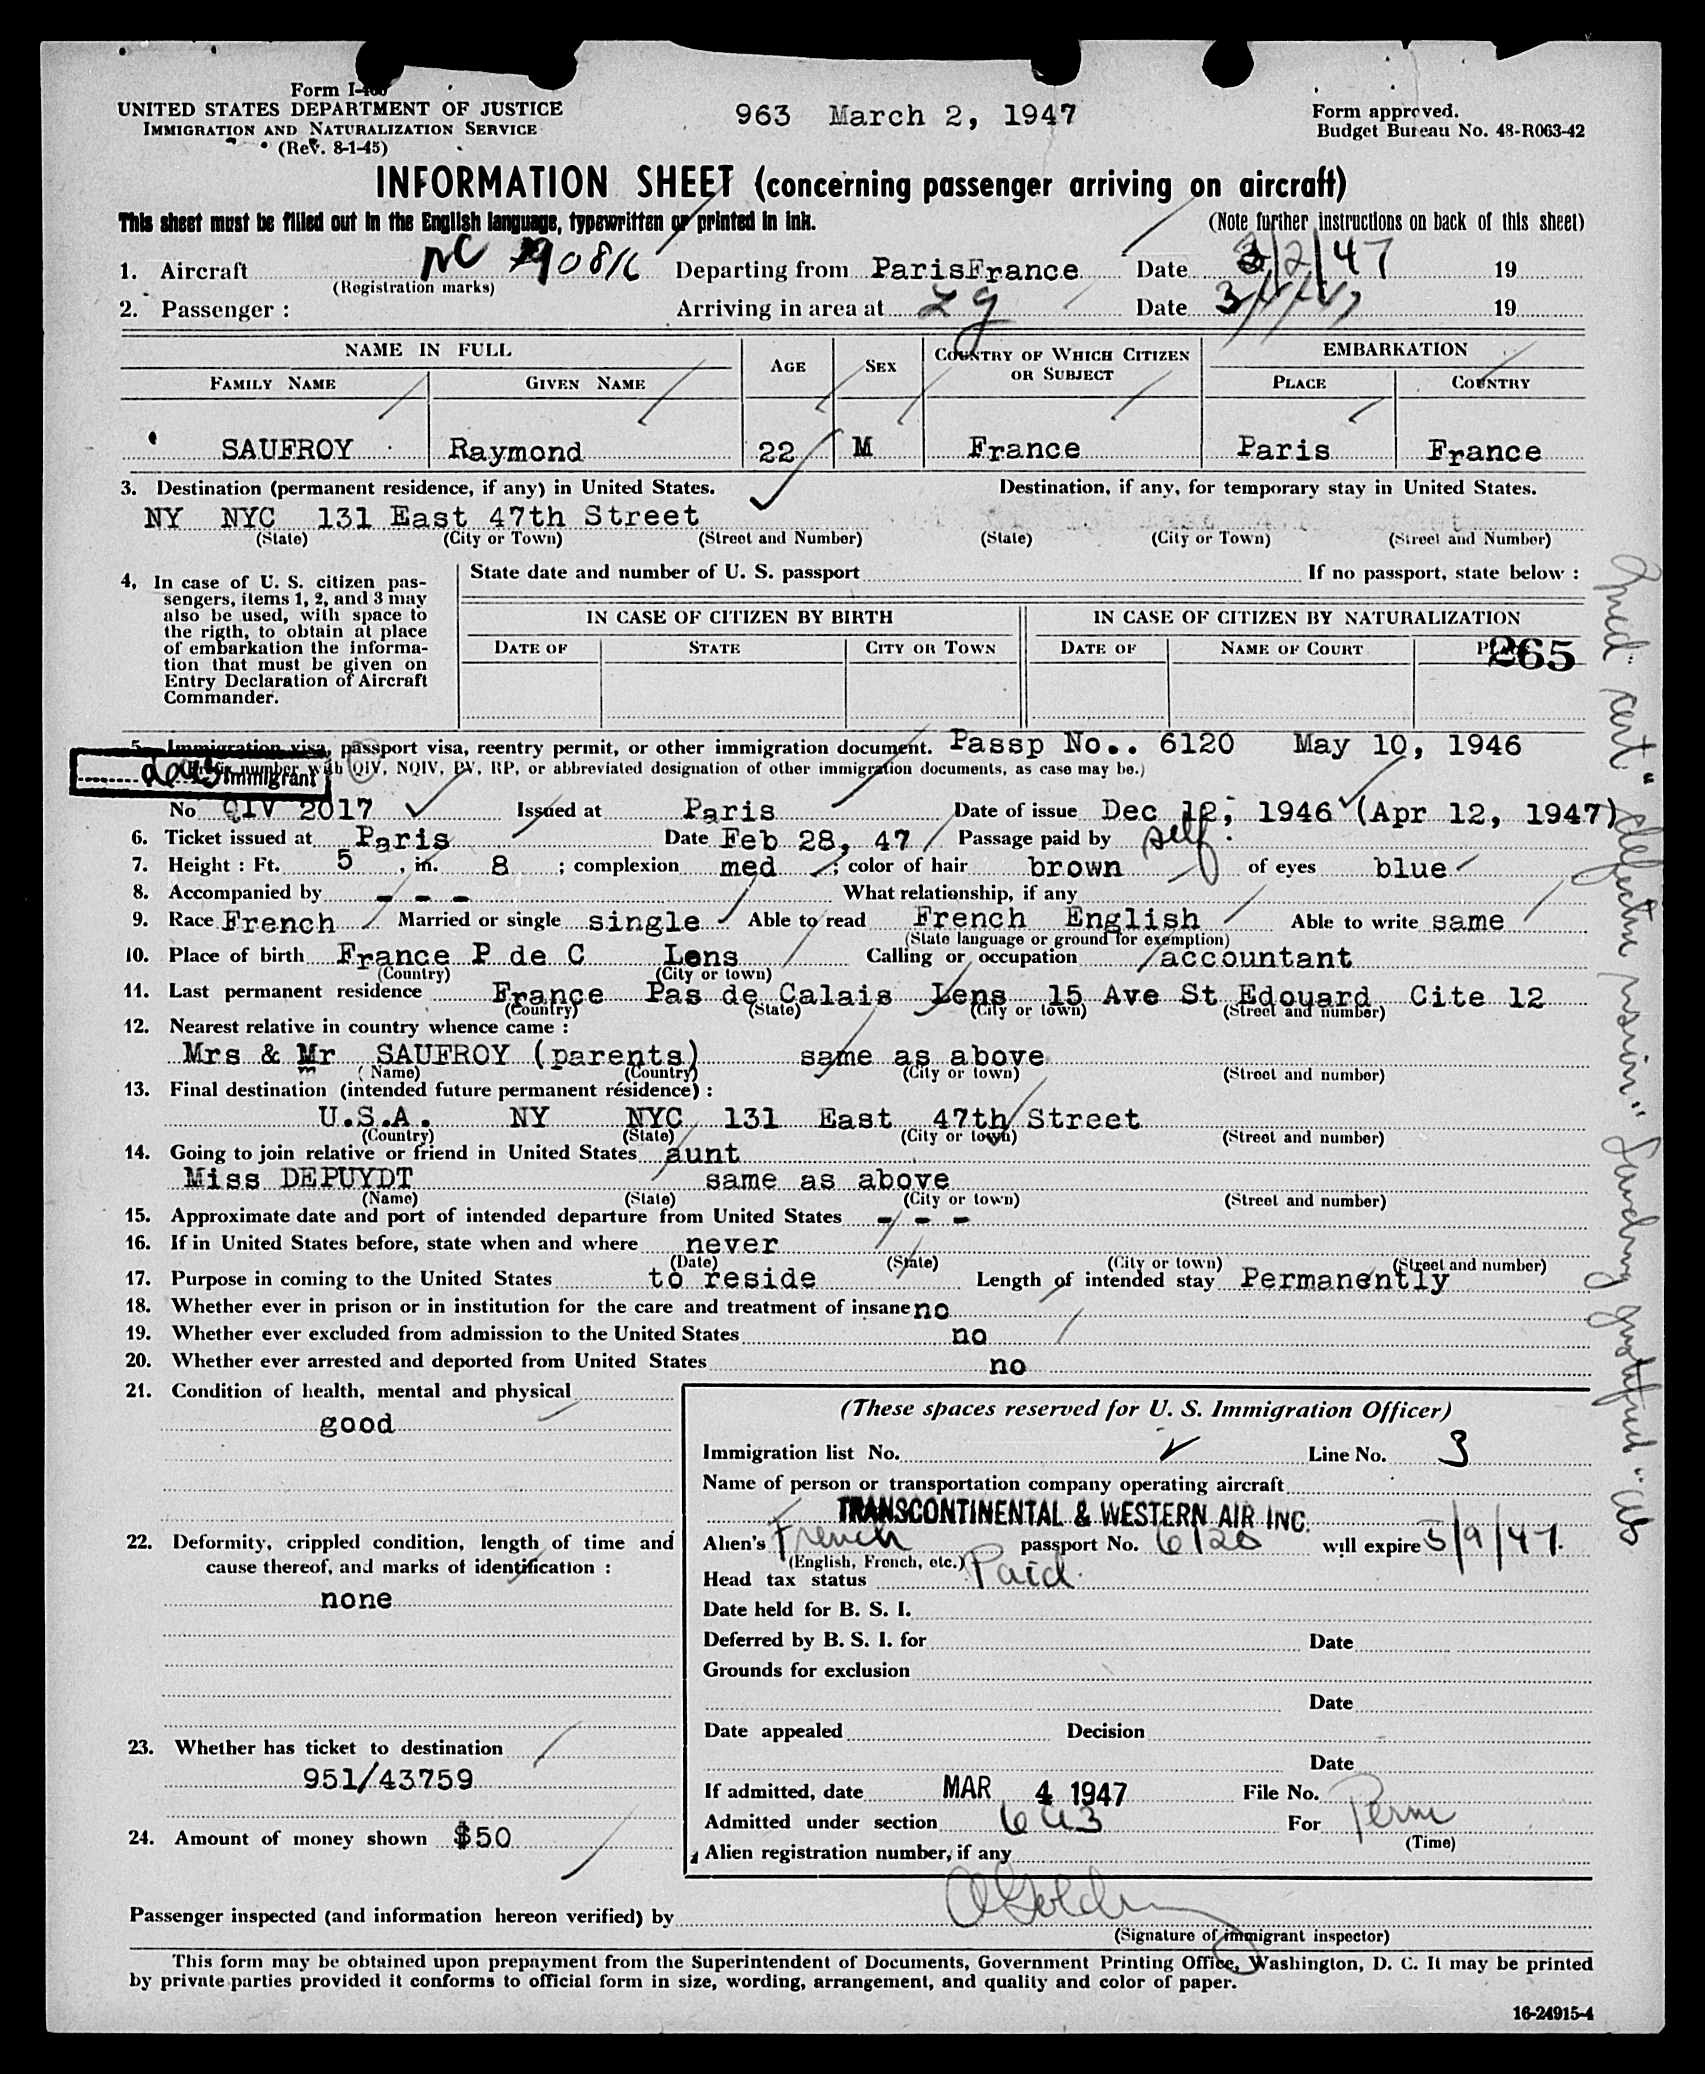 Form I-466
UNITED STATES DEPARTMENT OF JUSTICE
IMMIGRATION AND NATURALIZATION SERVICE
(Rev. 8-1-45)
963 March 2, 1947
Form approved.
Budget Bureau No. 48-R063-42
INFORMATION SHEET (concerning passenger arriving on aircraft)
This sheet must be filled out in the English language, typewritten or printed in ink.
(Note further instructions on back of this sheet)
1. Aircraft NC 90816 Departing from ParisFrance Date 3/2/47 19
(Registration marks)
2. Passenger : Arriving in area at Lg Date 19
NAME IN FULL AGE SEX COUNTRY OF WHICH CITIZEN OR SUBJECT EMBARKATION
FAMILY NAME GIVEN NAME PLACE COUNTRY
SAUFROY Raymond 22 M France Paris France
3. Destination (permanent residence, if any) in United States. Destination, if any, for temporary stay in United States.
NY NYC 131 East 47th Street
(State) (City or Town) (Street and Number) (State) (City or Town) (Street and Number)
4, In case of U. S. citizen pas-
sengers, items 1, 2, and 3 may
also be used, with space to
the rigth, to obtain at place
of embarkation the informa-
tion that must be given on
Entry Declaration of Aircraft
Commander.
State date and number of U. S. passport If no passport, state below :
IN CASE OF CITIZEN BY BIRTH IN CASE OF CITIZEN BY NATURALIZATION
DATE OF STATE CITY OR TOWN DATE OF NAME OF COURT PLACE
265
5. Immigration visa, passport visa, reentry permit, or other immigration document. Passp No.. 6120 May 10, 1946
number with QIV, NQIV, PV, RP, or abbreviated designation of other immigration documents, as case may be.)
Immigrant
No QIV 2017 Issued at Paris Date of issue Dec 12, 1946 (Apr 12, 1947)
6. Ticket issued at Paris Date Feb 28, 47 Passage paid by self
7. Height : Ft. 5 , in. 8 ; complexion med ; color of hair brown of eyes blue
8. Accompanied by - - - What relationship, if any
9. Race French Married or single single Able to read French English Able to write same
(State language or ground for exemption)
10. Place of birth France P de C Lens Calling or occupation accountant
(Country) (City or town)
11. Last permanent residence France Pas de Calais Lens 15 Ave St Edouard Cite 12
(Country) (State) (City or town) (Street and number)
12. Nearest relative in country whence came :
Mrs & Mr SAUFROY (parents) same as above
(Name) (Country) (City or town) (Street and number)
13. Final destination (intended future permanent résidence) :
U.S.A. NY NYC 131 East 47th Street
(Country) (State) (City or town) (Street and number)
14. Going to join relative or friend in United States aunt
Miss DEPUYDT same as above
(Name) (State) (City or town) (Street and number)
15. Approximate date and port of intended departure from United States - - -
16. If in United States before, state when and where never
(Date) (State) (City or town) (Street and number)
17. Purpose in coming to the United States to reside Length of intended stay Permanently
18. Whether ever in prison or in institution for the care and treatment of insane no
19. Whether ever excluded from admission to the United States no
20. Whether ever arrested and deported from United States no
21. Condition of health, mental and physical
good
22. Deformity, crippled condition, length of time and
cause thereof, and marks of identification :
none
23. Whether has ticket to destination
951/43759
24. Amount of money shown $50
(These spaces reserved for U. S. Immigration Officer)
Immigration list No. Line No. 3
Name of person or transportation company operating aircraft
TRANSCONTINENTAL & WESTERN AIR INC.
Alien's French passport No. 6120 will expire 5/9/47.
(English, French, etc.)
Head tax status Paid.
Date held for B. S. I.
Deferred by B. S. I. for Date
Grounds for exclusion
Date
Date appealed Decision
Date
If admitted, date MAR 4 1947 File No.
Admitted under section 6a3 For Perm
(Time)
Alien registration number, if any
Passenger inspected (and information hereon verified) by
(Signature of immigrant inspector)
This form may be obtained upon prepayment from the Superintendent of Documents, Government Printing Office, Washington, D. C. It may be printed
by private parties provided it conforms to official form in size, wording, arrangement, and quality and color of paper.
16-24915-4
Med. cert "defective vision"